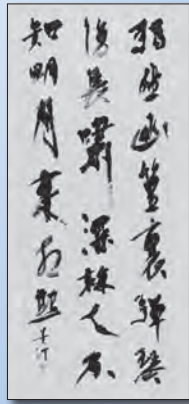 獨坐幽篁裏彈琴
復長嘯深林人不
知明月來相照